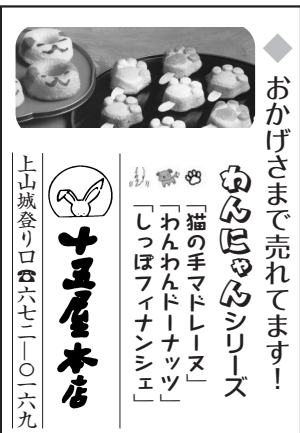 ◆おかげさまで売れてます！
わんにゃんシリーズ
「猫の手マドレーヌ」
「わんわんドーナッツ」
「しっぽフィナンシェ」
十五屋本店
上山城登り口☎六七二―〇一六九